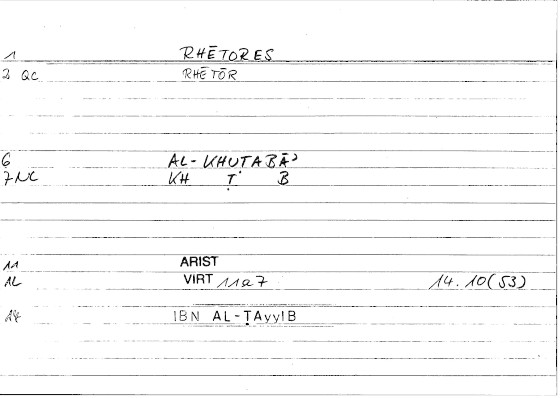 1 RHĒTORES
2 QC RHĒTŌR
6 AL-KHUṬABĀʾ
7 NC KH Ṭ B
11 ARIST
12 VIRT 11a7 14.10(53)
14 IBN AL-ṬAyyIB